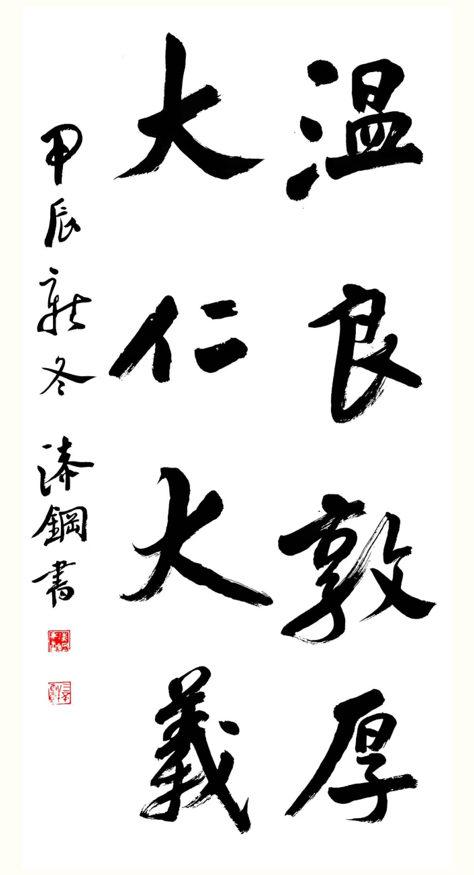 温良敦厚
大仁大義
甲辰冬漆鋼書